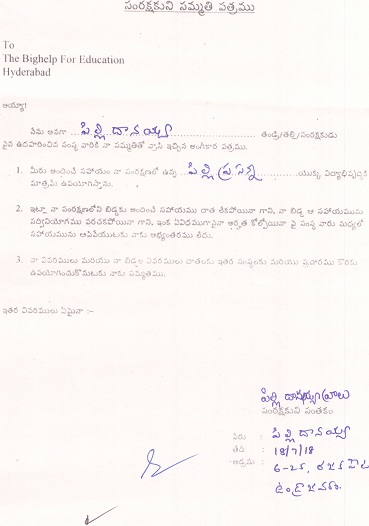 సంరక్షకుని సమ్మతి పత్రము
To
The Bighelp For Education
Hyderabad
అయ్యా!
నేను అనగా ... పిల్లి దానయ్య ... తండ్రి/తల్లి/సంరక్షకుడు
పైన ఉదహరించిన సంస్థ వారికి నా సమ్మతితో వ్రాసి ఇచ్చిన అంగీకార పత్రము.
1. మీరు అందించే సహాయం నా సంరక్షణలో ఉన్న ... పిల్లి ప్రసన్న ... యొక్క విద్యాభివృద్ధికి
మాత్రమే ఉపయోగిస్తాను.
2. ఇట్లా నా సంరక్షణలోని బిడ్డకు అందించే సహాయము దాత లేకపోయినా గాని, నా బిడ్డ ఆ సహాయమును
సద్వినియోగము పరచకపోయినా గాని, ఇంక ఏవిధముగానైనా అర్హత కోల్పోయినా పై సంస్థ వారు మధ్యలో
సహాయమును ఆపివేయుటకు నాకు అభ్యంతరము లేదు.
3. నా వివరములు మరియు నా బిడ్డల వివరములు దాతలకు ఇతర సంస్థలకు మరియు ప్రచారము కొరకు
ఉపయోగించుకొనుటకు నాకు సమ్మతము.
ఇతర వివరములు ఏమైనా :-
పిల్లి దానయ్య వ్రాలు
సంరక్షకుని సంతకం
పేరు : పిల్లి దానయ్య
తేది : 18/7/18
అడ్రసు : 6-25,
ఉండ్రాజవరం.